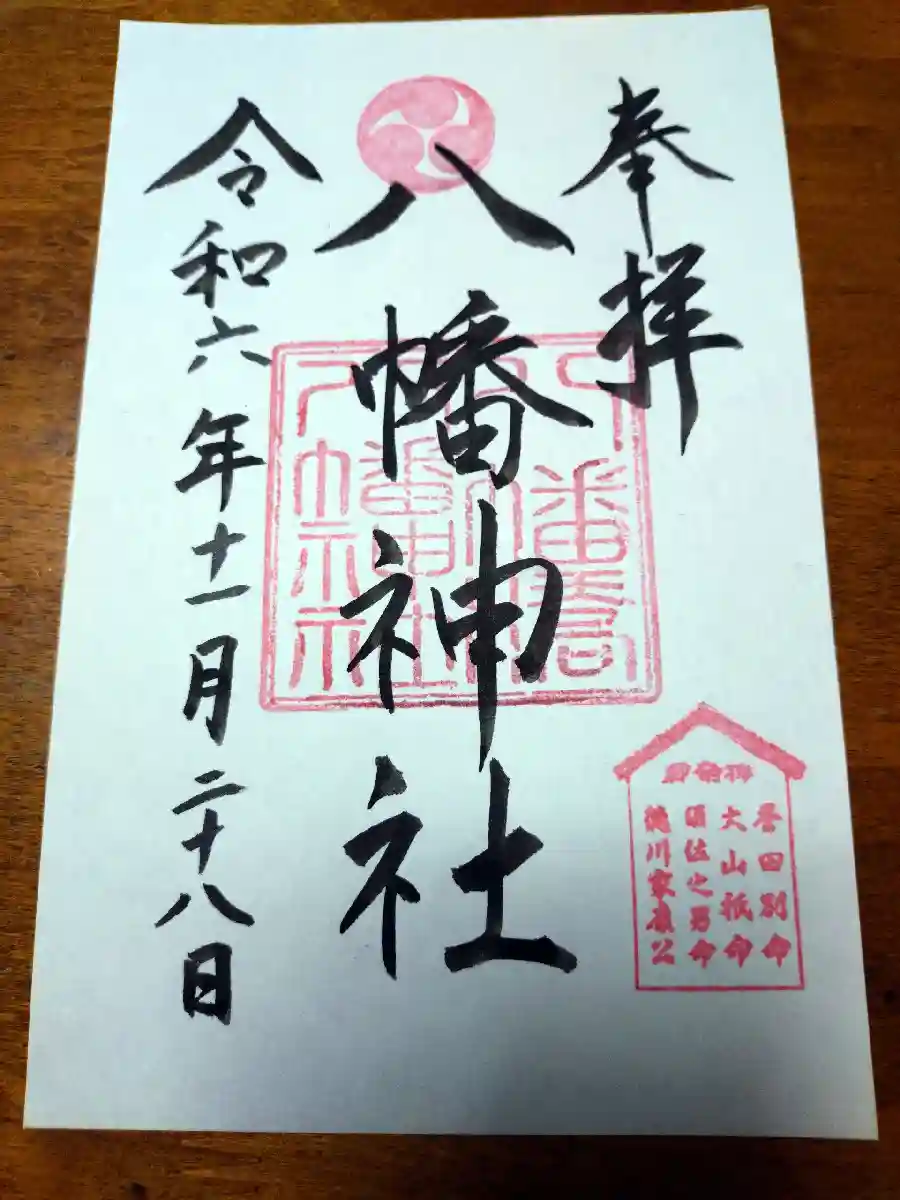 奉拝
八幡神社
令和六年十一月二十八日
御祭神
誉田別命
大山祇命
須佐之男命
徳川家康公